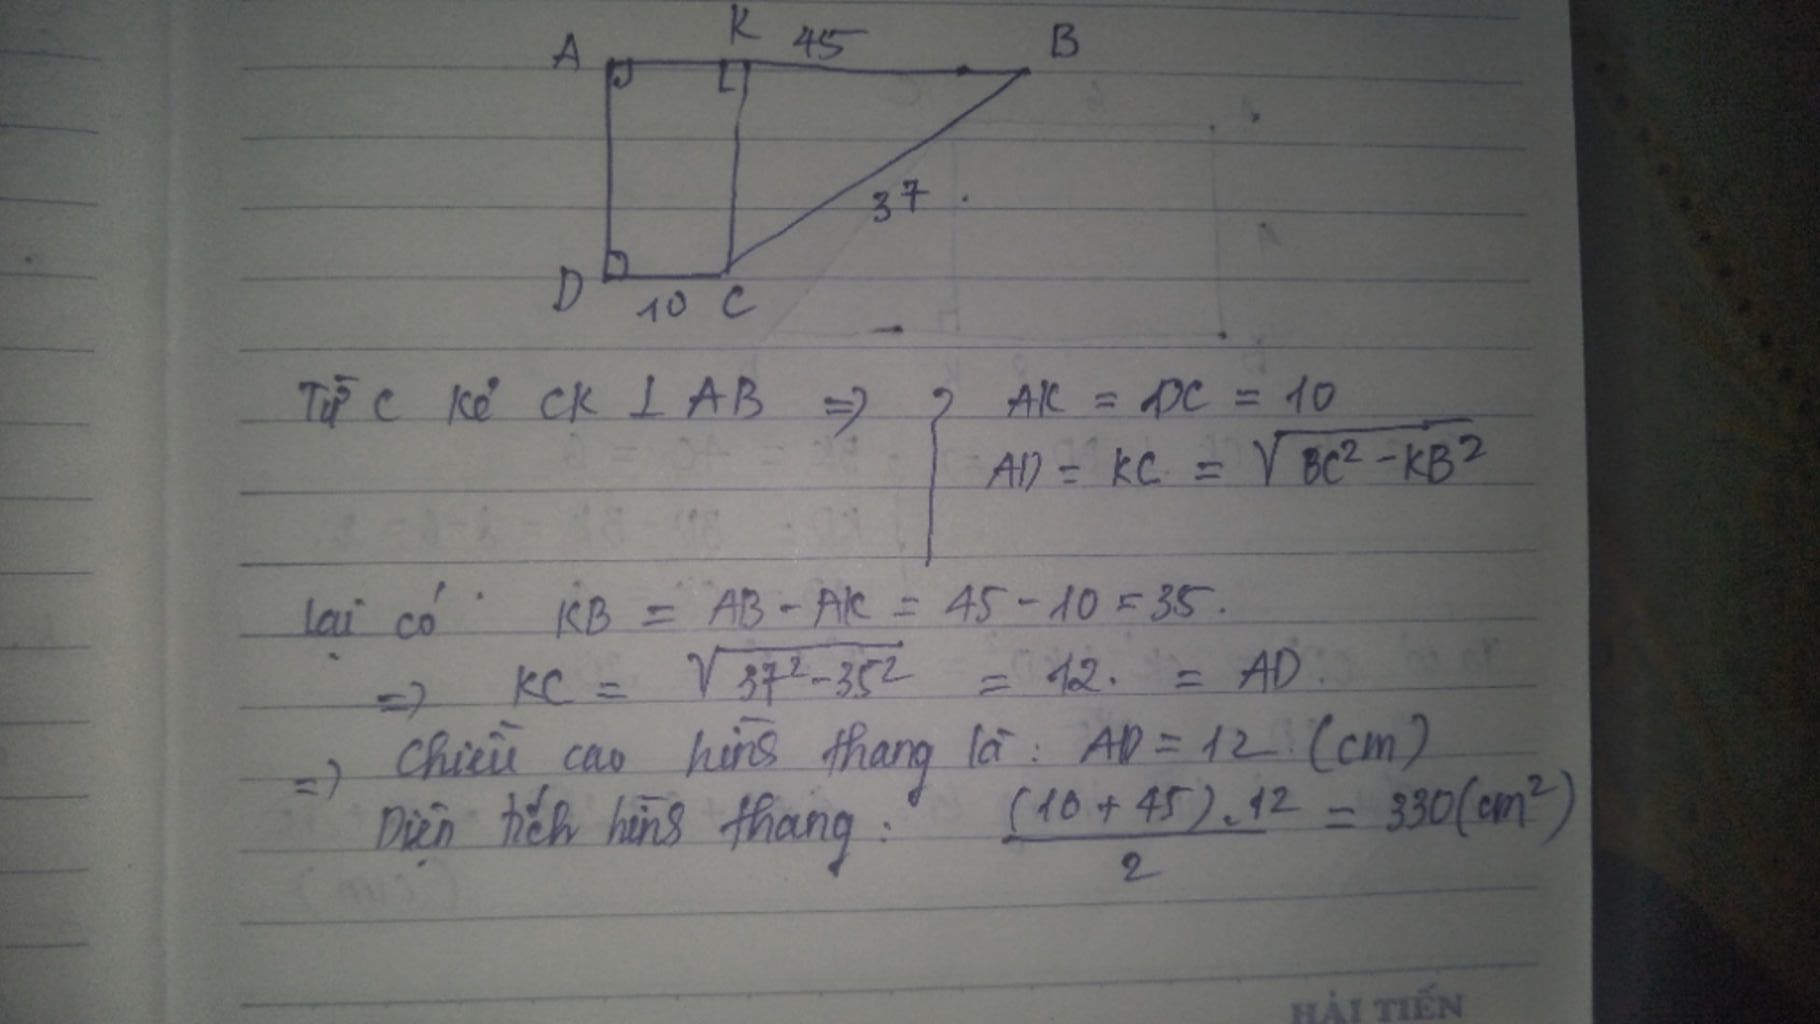 K 45
A B
37
D 10 C
Từ C kẻ CK ⊥ AB => { AK = DC = 10
AD = KC = √(BC² - KB²)
Lại có KB = AB - AK = 45 - 10 = 35.
=> KC = √(37² - 35²) = 12. = AD.
=> Chiều cao hình thang là: AD = 12 (cm)
Diện tích hình thang: (10 + 45).12 / 2 = 330 (cm²)
HẢI TIẾN